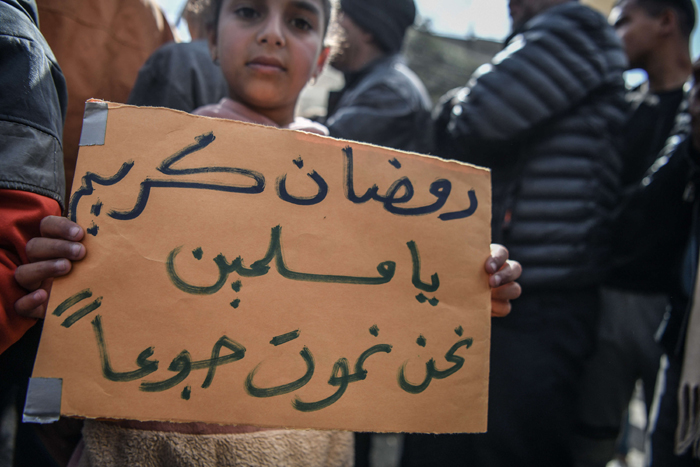 رمضان كريم
يا مسلمين
نحن نموت جوعاً